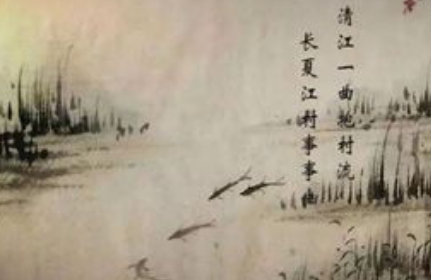 清江一曲抱村流
长夏江村事事